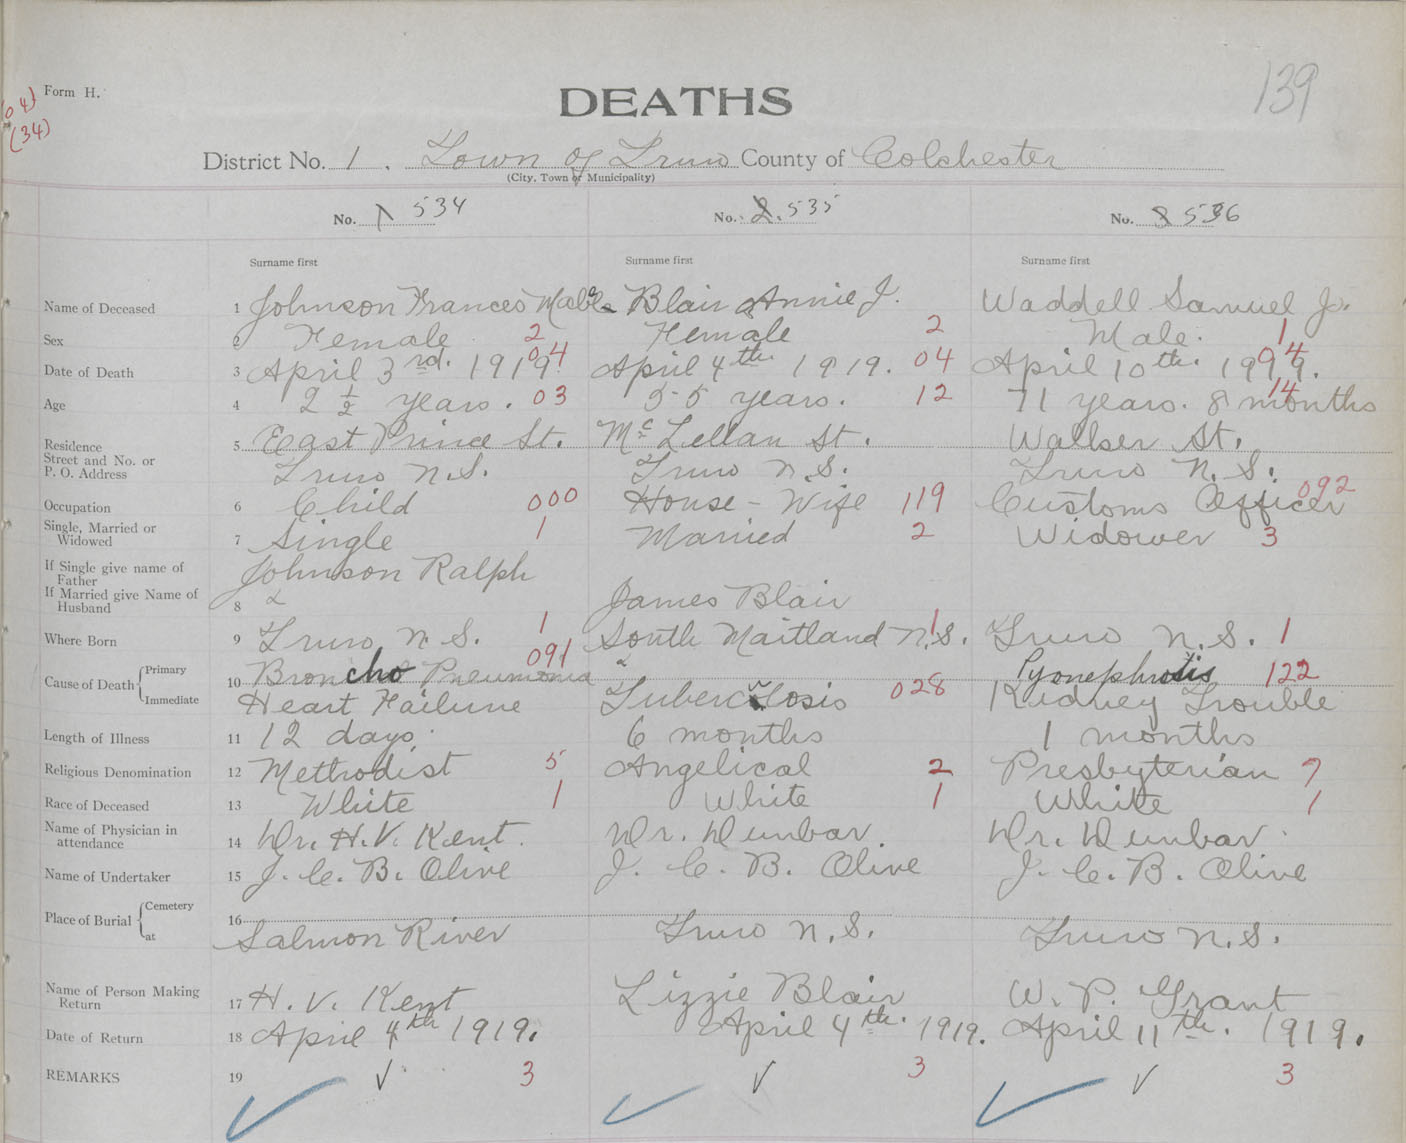 Form H.
DEATHS
139
(04)
(34)
District No. 1. Town of Truro County of Colchester
(City, Town or Municipality)
No. 1 534 No. 2. 535 No. 3 536
Surname first Surname first Surname first
Name of Deceased 1 Johnson Frances Mable Blair Annie J. Waddell Samuel J.
Sex 2 Female 2 Female 2 Male. 1
Date of Death 3 April 3rd. 1919. 04 April 4th 1919. 04 April 10th. 1919. 04
Age 4 2 1/2 years. 03 55 years. 12 71 years. 8 months 14
Residence
Street and No. or
P. O. Address
5 East Prince St. McLellan St. Walker St.
Truro N.S. Truro N.S. Truro N.S.
Occupation 6 Child 000 House-Wife 119 Customs Officer 092
Single, Married or
Widowed
7 Single 1 Married 2 Widower 3
If Single give name of
Father
Johnson Ralph
If Married give Name of
Husband
8 James Blair
Where Born 9 Truro N.S. 1 South Maitland N.S. 1 Truro N.S. 1
Cause of Death Primary 10 Broncho Pneumonia 091 Pyonephrosis 122
Immediate Heart Failure Tuberculosis 028 Kidney Trouble
Length of Illness 11 12 days. 6 months 1 months
Religious Denomination 12 Methodist 5 Angelical 2 Presbyterian 7
Race of Deceased 13 White 1 White 1 White 1
Name of Physician in
attendance
14 Dr. H. V. Kent. Dr. Dunbar. Dr. Dunbar.
Name of Undertaker 15 J. C. B. Olive J. C. B. Olive J. C. B. Olive
Place of Burial Cemetery 16
at Salmon River Truro N.S. Truro N.S.
Name of Person Making
Return
17 H. V. Kent Lizzie Blair W. P. Grant
Date of Return 18 April 4th 1919. April 4th. 1919. April 11th. 1919.
REMARKS 19 3 3 3